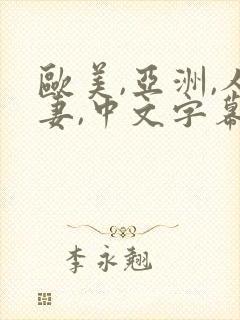 歐美,亞洲,人
妻,中文字幕
李永翹